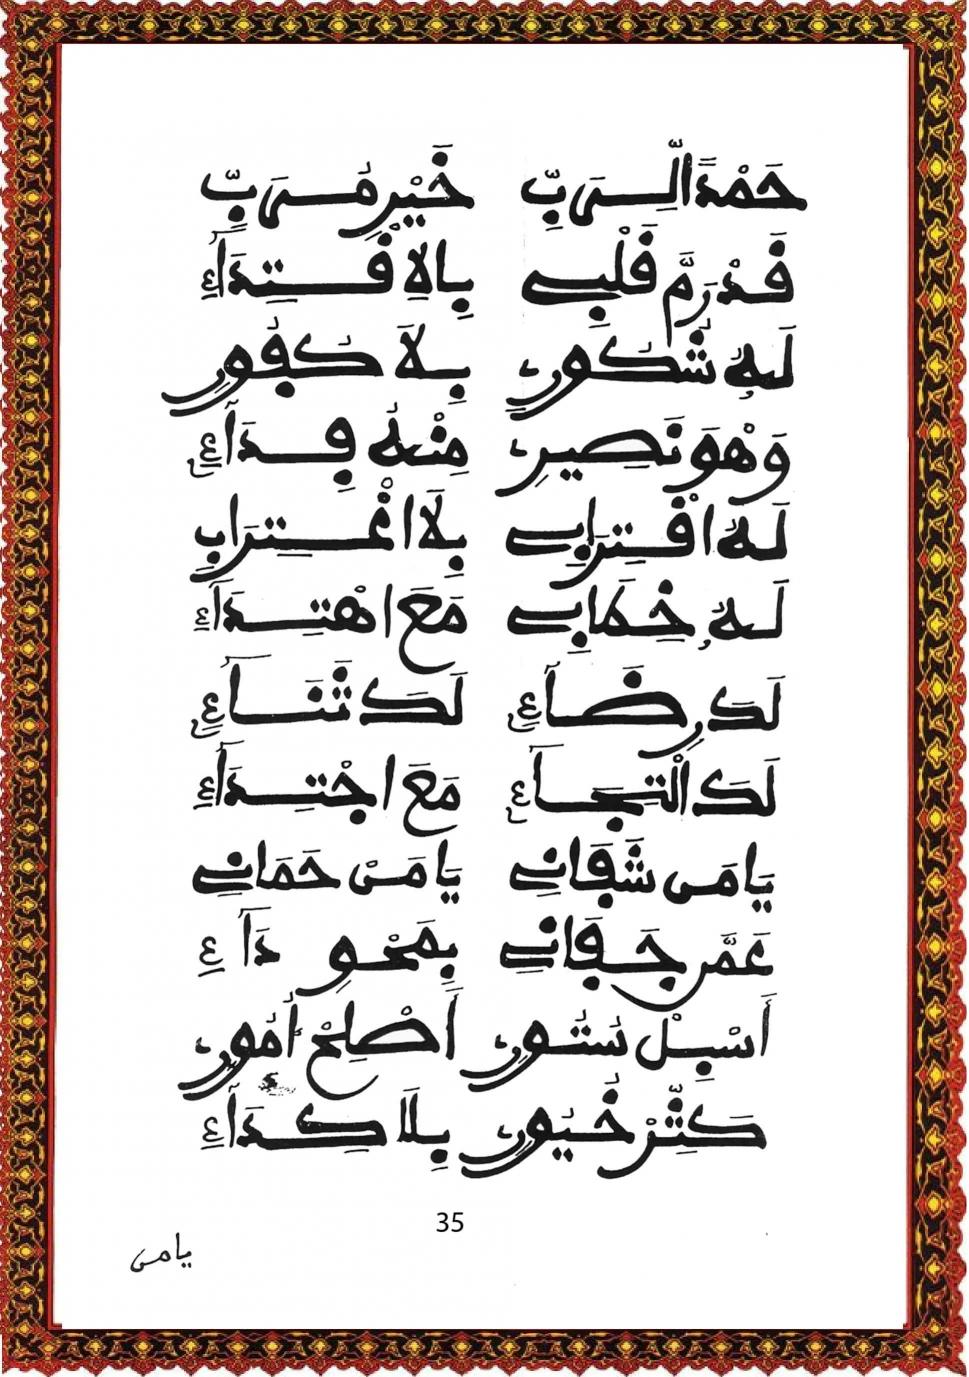 حَمْدًا لِّمَن رَّبِّ خَيْرِ مُرَبِّ
قَدْ رَمَّ قَلْبِي بِالِاقْتِدَآءِ
لَهُ شُكُورِ بِلَا كُفُورِ
وَهْوَ نَصِيرِ مِنْهُ فِدَآءِ
لَهُ اقْتِرَابِي بِلَا اغْتِرَابِ
لَهُ خِطَابِي مَعَ اهْتِدَآءِ
لَكَ رِضَآءِ لَكَ ثَنَآءِ
لَكَ الْتِجَآءِ مَعَ اجْتِدَآءِ
يَا مَن شَفَانِي يَا مَنْ حَمَانِي
عَمِّرْ جِفَانِي بِمَحْوِ دَآءِ
أَسْبِلْ سُتُورِ أَصْلِحْ أُمُورِ
كَثِّرْ خُيُورِ بِلَا كِدَآءِ
35
يامن